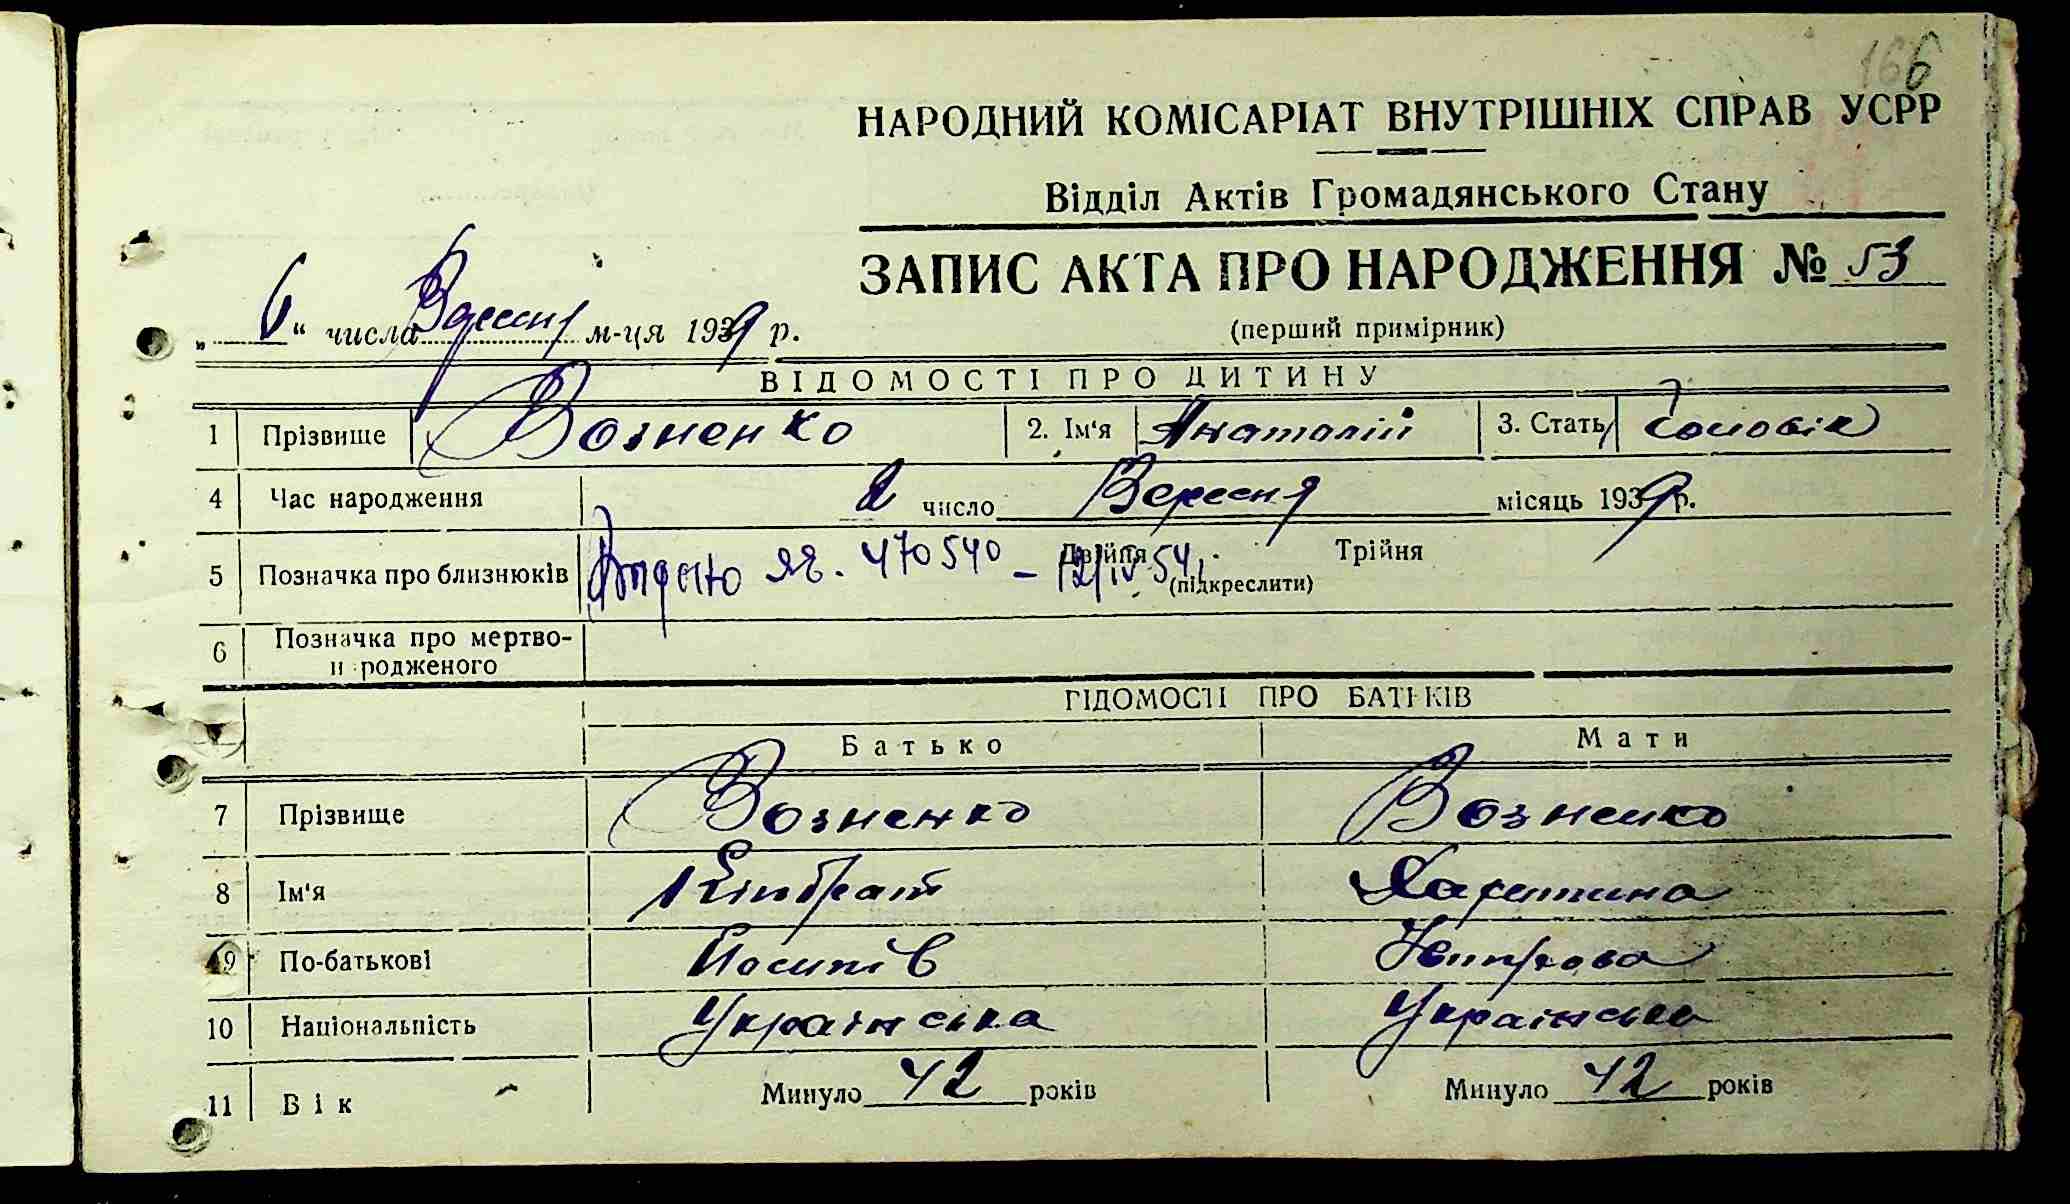 166
НАРОДНИЙ КОМІСАРІАТ ВНУТРІШНІХ СПРАВ УСРР
Відділ Актів Громадянського Стану
ЗАПИС АКТА ПРО НАРОДЖЕННЯ № 53
„ 6 “ числа Вересня м-ця 1939 р.
(перший примірник)
ВІДОМОСТІ ПРО ДИТИНУ
1 Прізвище Возненко 2. Ім'я Анатолій 3. Стать Чоловік
4 Час народження 2 число Вересня місяць 1939 р.
5 Позначка про близнюків Двійня Трійня
ЯЯ. 470540 – 12/IV 54
(підкреслити)
6 Позначка про мертво-
н родженого
ВІДОМОСТІ ПРО БАТЬКІВ
Батько Мати
7 Прізвище Возненко Возненко
8 Ім'я Кіндрат Харитина
9 По-батькові Йосипів
10 Національність Українська Українська
11 Вік Минуло 42 років Минуло 42 років